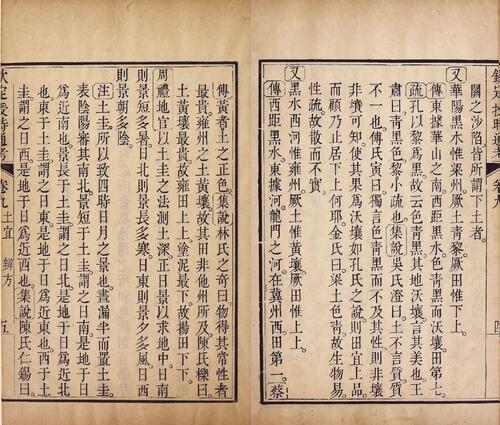 闕之沙陷皆所謂下土者
又華陽黑水惟梁州厥土青黎厥田惟下上
傳東據華山之南西距黑水色青黑而沃壤田第七
疏孔以黎爲黑故云色青黑其地沃壤言其美也王
肅曰青黑色黎小疏也集說吳氏澄曰土不言質質
不一也傅氏寅曰獨言色青黑而不及其性則非壤
非墳可知使其果爲沃壤如孔氏之說則田宜上品
而顧乃止居下上何耶金氏曰梁土色青故生物易
性疏故散而不實
又黑水西河惟雍州厥土惟黃壤厥田惟上上
傳西距黑水東據河龍門之河在冀州西田第一蔡
傳黃者土之正色集說林氏之奇曰物得其常性者
最貴雍州之土黃壤故其田非他州所及陳氏櫟曰
土黃壤最貴故雍田上上塗泥最下故揚田下下
周禮地官以土圭之法測土深正日景以求地中日南
則景短多暑日北則景長多寒日東則景夕多風日西
則景朝多陰
注土圭所以致四時日月之景也晝漏半而置土圭
表陰陽審其南北景短于土圭謂之日南是地于日
爲近南也景長于土圭謂之日北是地于日爲近北
也東于土圭謂之日東是地于日爲近東也西于土
圭謂之日西是地于日爲近西也集說陳氏仁錫曰
欽定授時通考 卷九 土宜 辨方 五